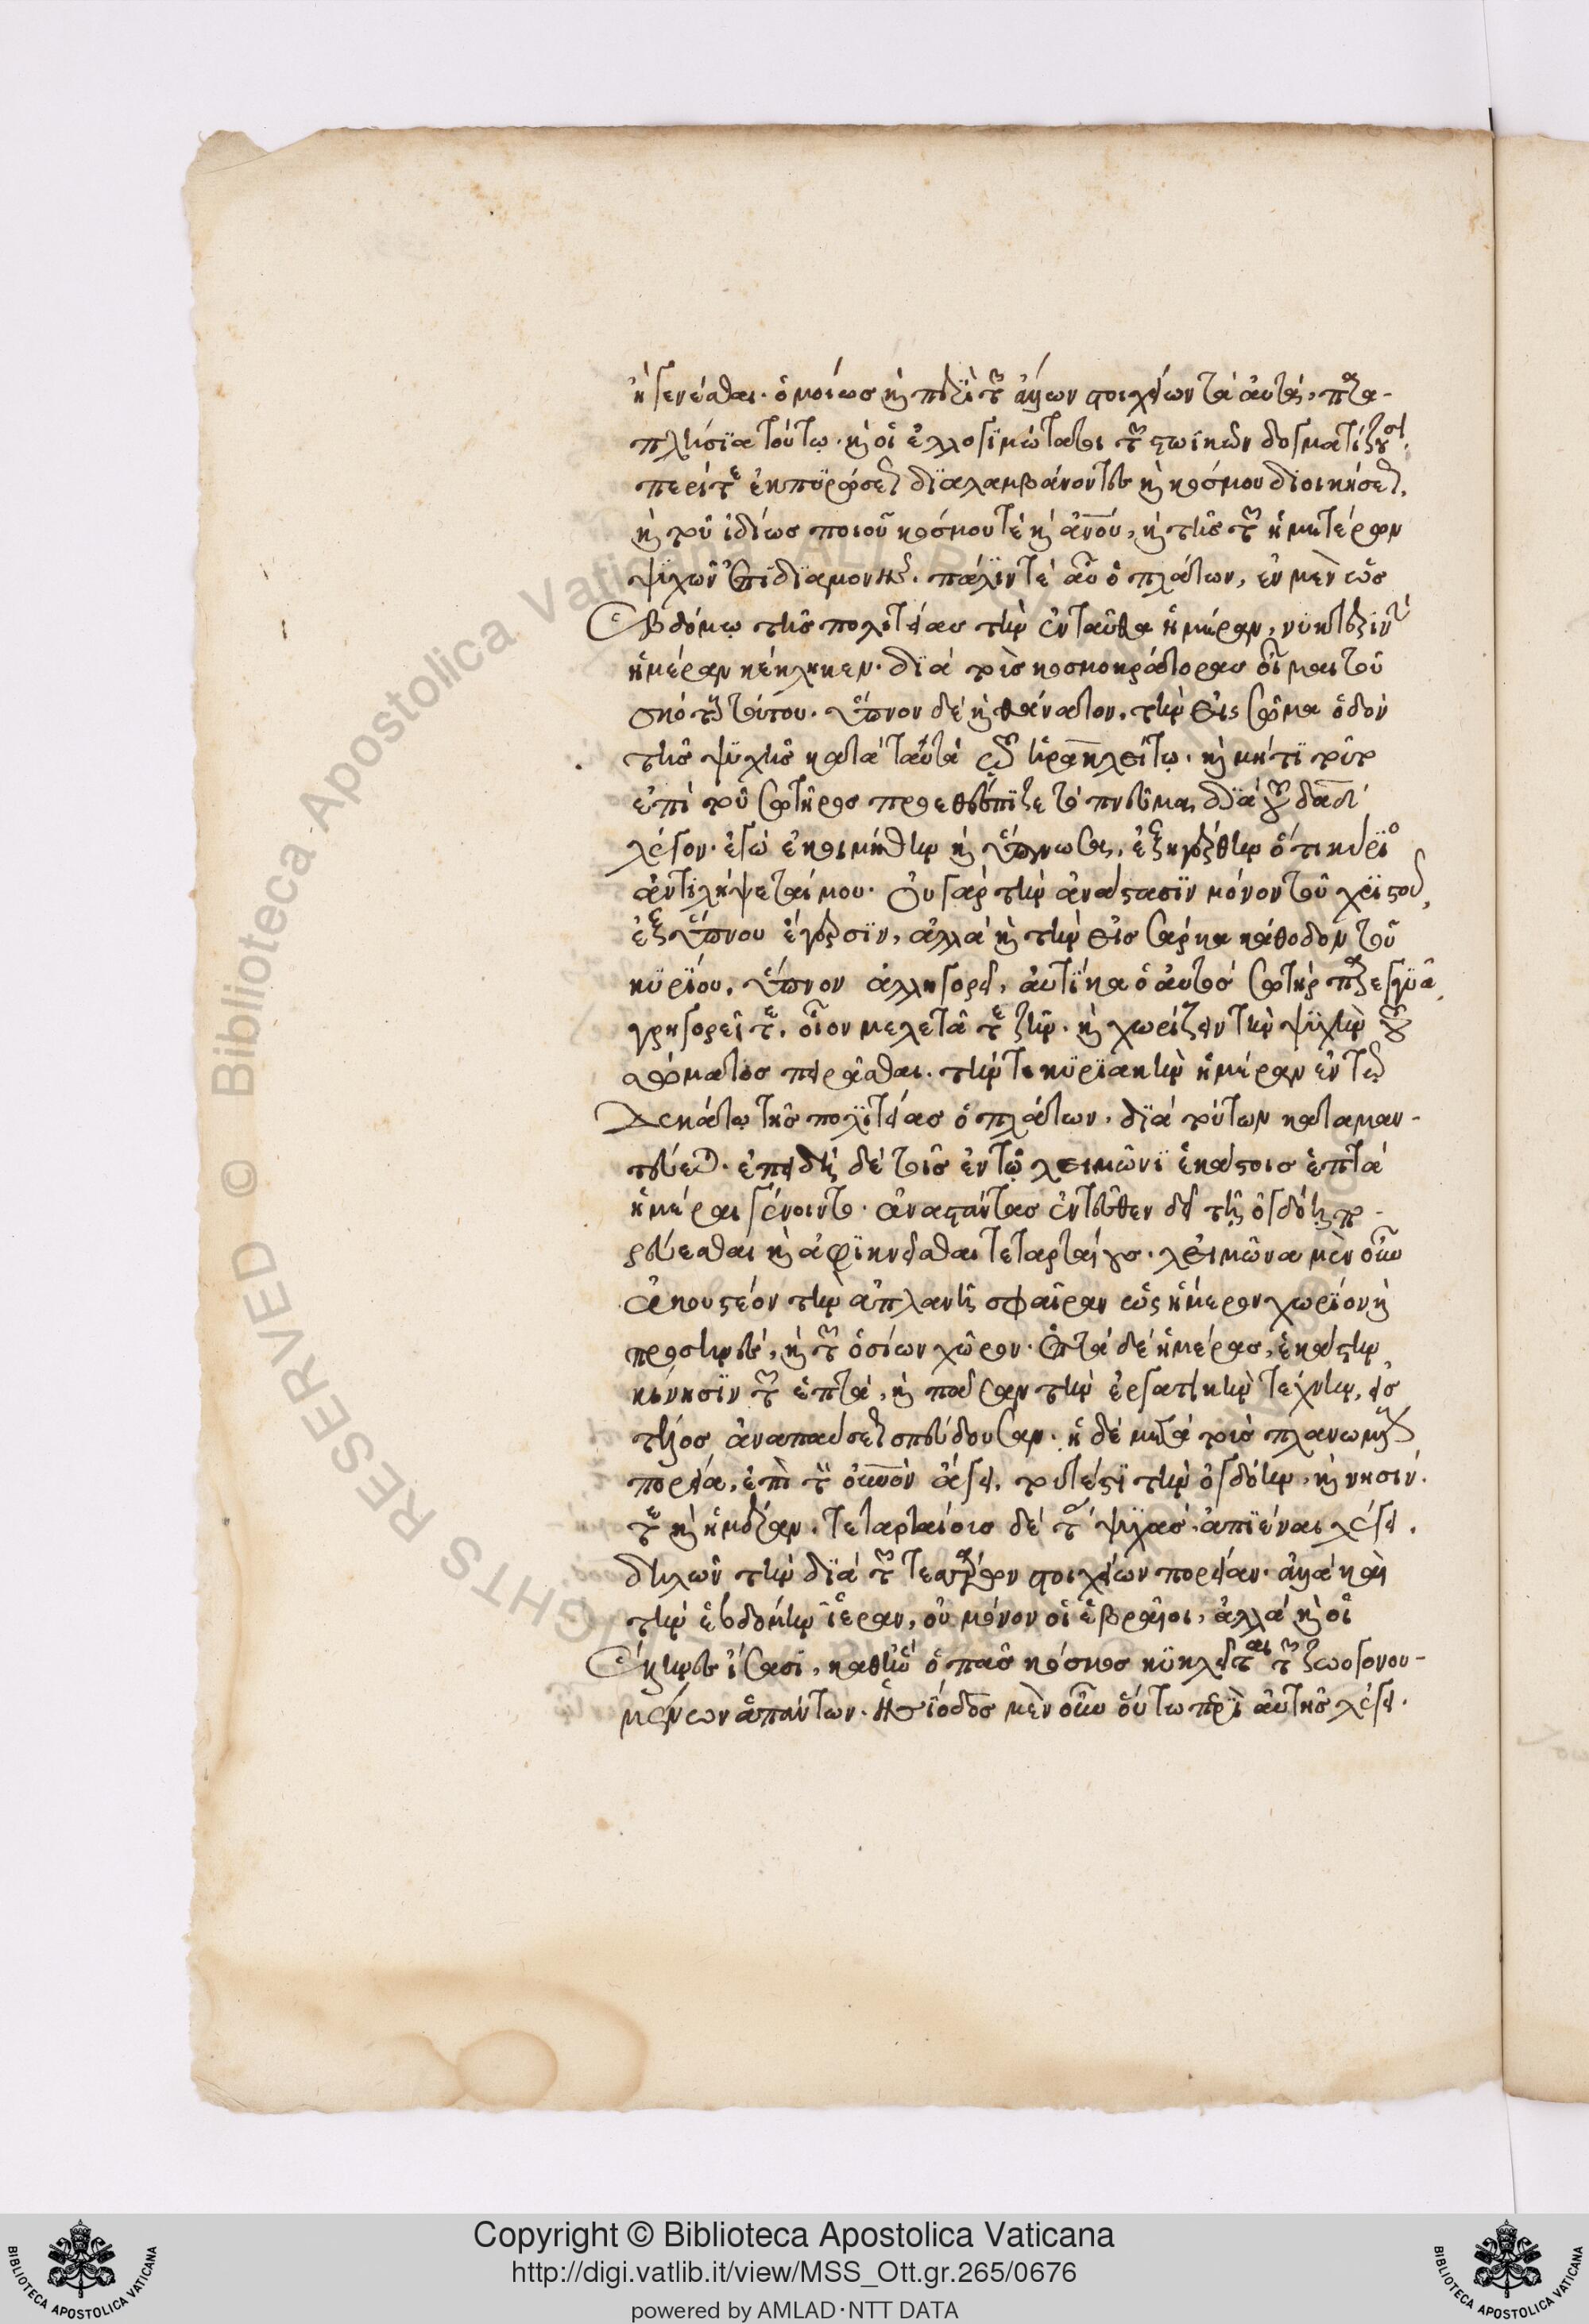 ἢ γενέσθαι. ὁμοίως καὶ περὶ τῶν ἄλλων στοιχείων τὰ αὐτά. παρα-
πλήσια τούτω. καὶ οἱ ἐλλογιμώτατοι τῶν στωϊκῶν δογματίζουσι.
περί τε ἐκπυρώσεως διαλαμβάνοντες καὶ κόσμου διοικήσεως.
καὶ τοῦ ἰδίως ποιοῦ κόσμου τὲ καὶ ἀνου, καὶ τῆς τῶν ἡμετέρων
ψυχῶν ἐπιδιαμονῆς. πάλιν τὲ αὖ ὁ πλάτων, ἐν μὲν τῶ
Ἑβδόμω τῆς πολιτείας τὴν ἐνταῦθα ἡμέραν, νυκτερινὴν
ἡμέραν κέκληκεν. διὰ τοὺς κοσμοκράτορας οἶμαι τοῦ
σκότους τούτου. ὕπνον δὲ καὶ θάνατον. τὴν εἰς σῶμα ὁδὸν
τῆς ψυχῆς κατὰ ταὐτὰ τῶ ἡρακλείτω. καὶ μή τι τοῦτο
ἐπὶ τοῦ σωτῆρος προεθέσπιζε τὸ πνεῦμα, διὰ τοῦ δαδ
λέγον. ἐγὼ ἐκοιμήθην καὶ ὕπνωσα, ἐξηγέρθην ὅτι κύριος
ἀντιλήψεταί μου. Οὐ γὰρ τὴν ἀνάστασιν μόνον τοῦ χριστοῦ,
ἐξ ὕπνου ἔγερσιν, ἀλλὰ καὶ τὴν εἰς σάρκα κάθοδον τοῦ
κυρίου, ὕπνον ἀλληγορεῖ, αὐτίκα ὁ αὐτὸς σωτὴρ παρεγγυᾶ,
γρηγορεῖτε. οἷον μελετᾶτε ζῆν. καὶ χωρίζειν τὴν ψυχὴν τοῦ
σώματος πειρᾶσθαι. τήν τε κυριακὴν ἡμέραν ἐν τῶ
Δεκάτω τῆς πολιτείας ὁ πλάτων. διὰ τούτων καταμαν-
τεύεται. ἐπειδὴ δὲ τοῖς ἐν τῶ λειμῶνι ἑκάστοις ἑπτὰ
ἡμέραι γένοιντο. ἀναστάντας ἐντεῦθεν δεῖ τῆ ὀγδόη πο-
ρεύεσθαι καὶ ἀφικνεῖσθαι τεταρταίους. λειμῶνα μὲν οὖν
ἀκουστέον τὴν ἀπλανῆ σφαῖραν ὡς ἥμερον χωρίον καὶ
προσηνὲς, καὶ τῶν ὁσίων χῶρον. Ἑπτὰ δὲ ἡμέρας, ἑκάστην
κίνησιν τῶν ἑπτὰ, καὶ πᾶσαν τὴν ἐργατικὴν τέχνην, εἰς
τέλος ἀναπαύσεως σπεύδουσαν. ἡ δὲ μετὰ τοὺς πλανωμένους
πορεία, ἐπὶ τὸν οὐνον ἄγει. τουτέστι τὴν ὀγδόην, κίνησίν
τε καὶ ἡμέραν. τεταρταίους δὲ τὰς ψυχὰς ἀπιέναι λέγει.
δηλῶν τὴν διὰ τῶν τεσσάρων στοιχείων πορείαν. ἀλλὰ καὶ
τὴν ἑβδόμην ἱερὰν, οὐ μόνον οἱ ἑβραῖοι, ἀλλὰ καὶ οἱ
Ἕλληνες ἴσασι, καθ' ἣν ὁ πᾶς κόσμος κυκλεῖται τῶν ζωογονου-
μένων ἁπάντων. Ἡσίοδος μὲν οὖν οὕτω περὶ αὐτῆς λέγει.
Copyright © Biblioteca Apostolica Vaticana
http://digi.vatlib.it/view/MSS_Ott.gr.265/0676
powered by AMLAD·NTT DATA